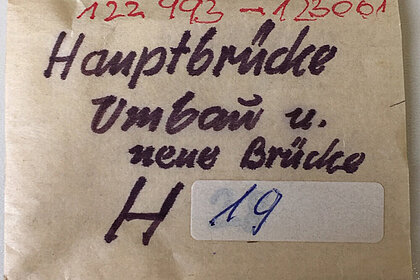 122 993 – 123001
Hauptbrücke
Umbau u.
neue Brücke
H 19